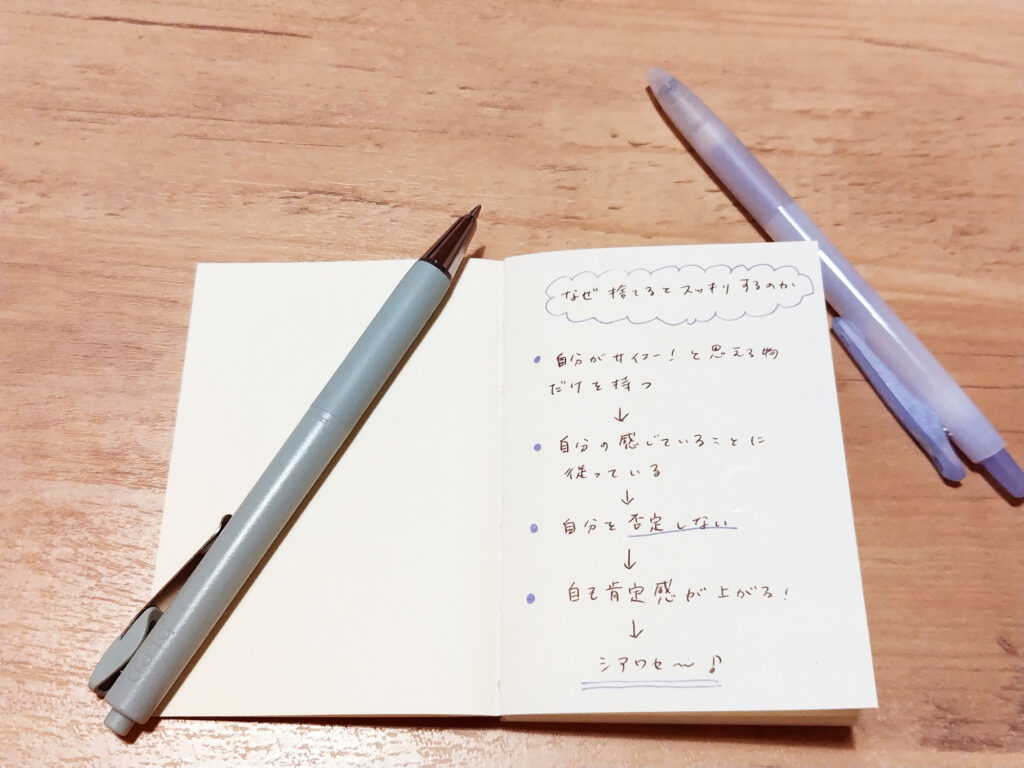 なぜ捨てるとスッキリするのか
• 自分がサイコー!と思える物
だけを持つ
↓
• 自分の感じていることに
従っている
↓
• 自分を否定しない
↓
• 自己肯定感が上がる!
↓
シアワセ〜♪